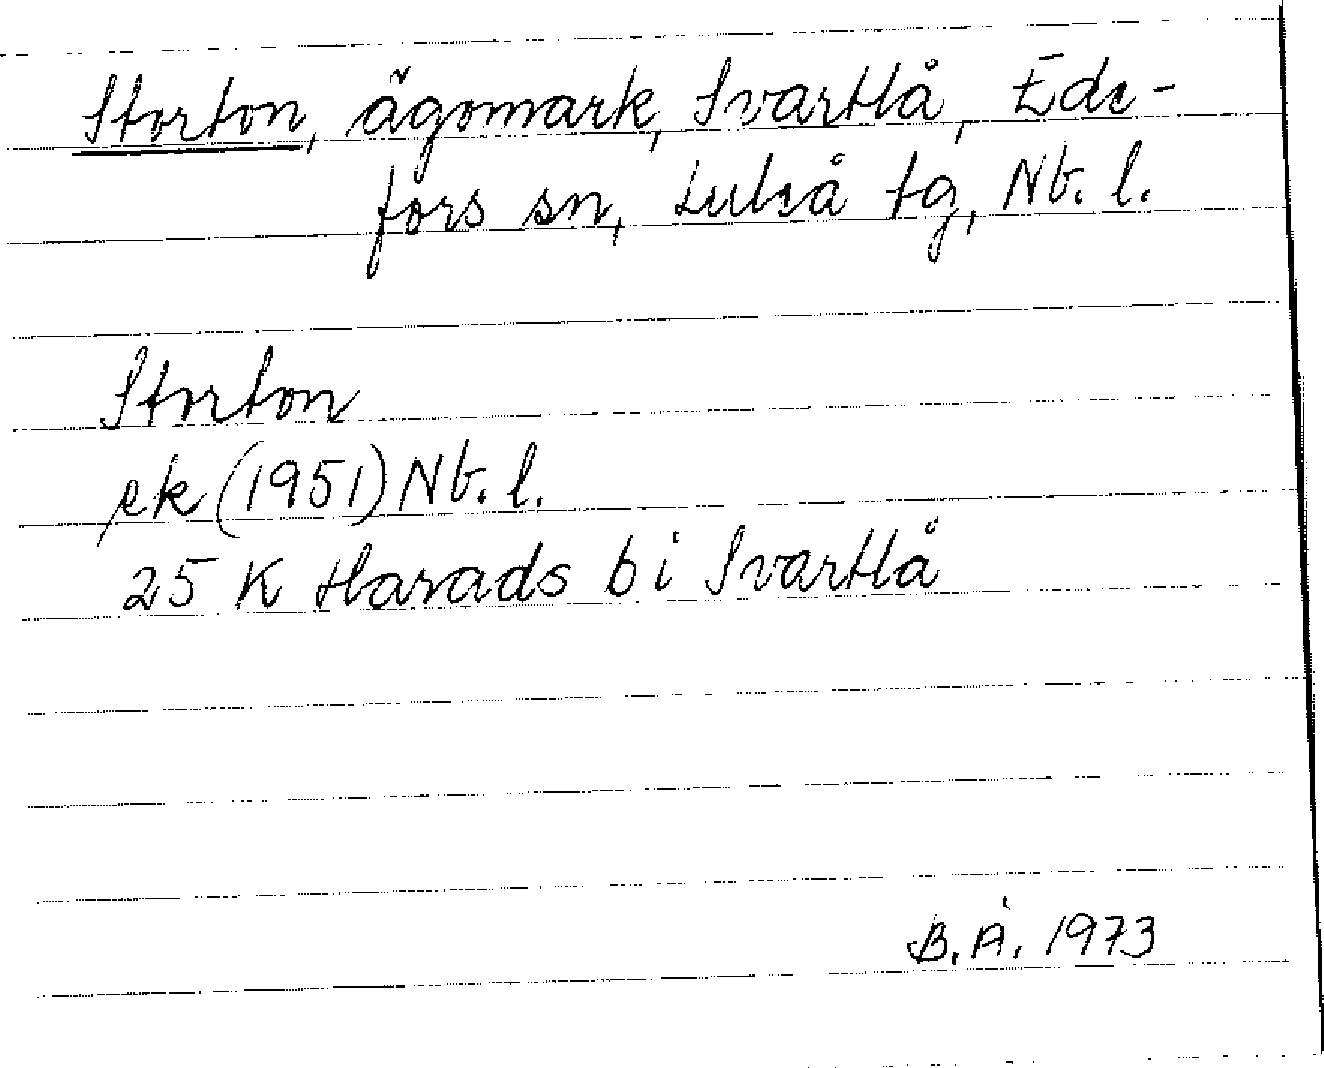 Storton, ägomark, Svartlå, Ede-
fors sn, Luleå tg, Nb. l.
Storton
ek (1951) Nb. l.
25 K Harads b i Svartlå
B. Å. 1973